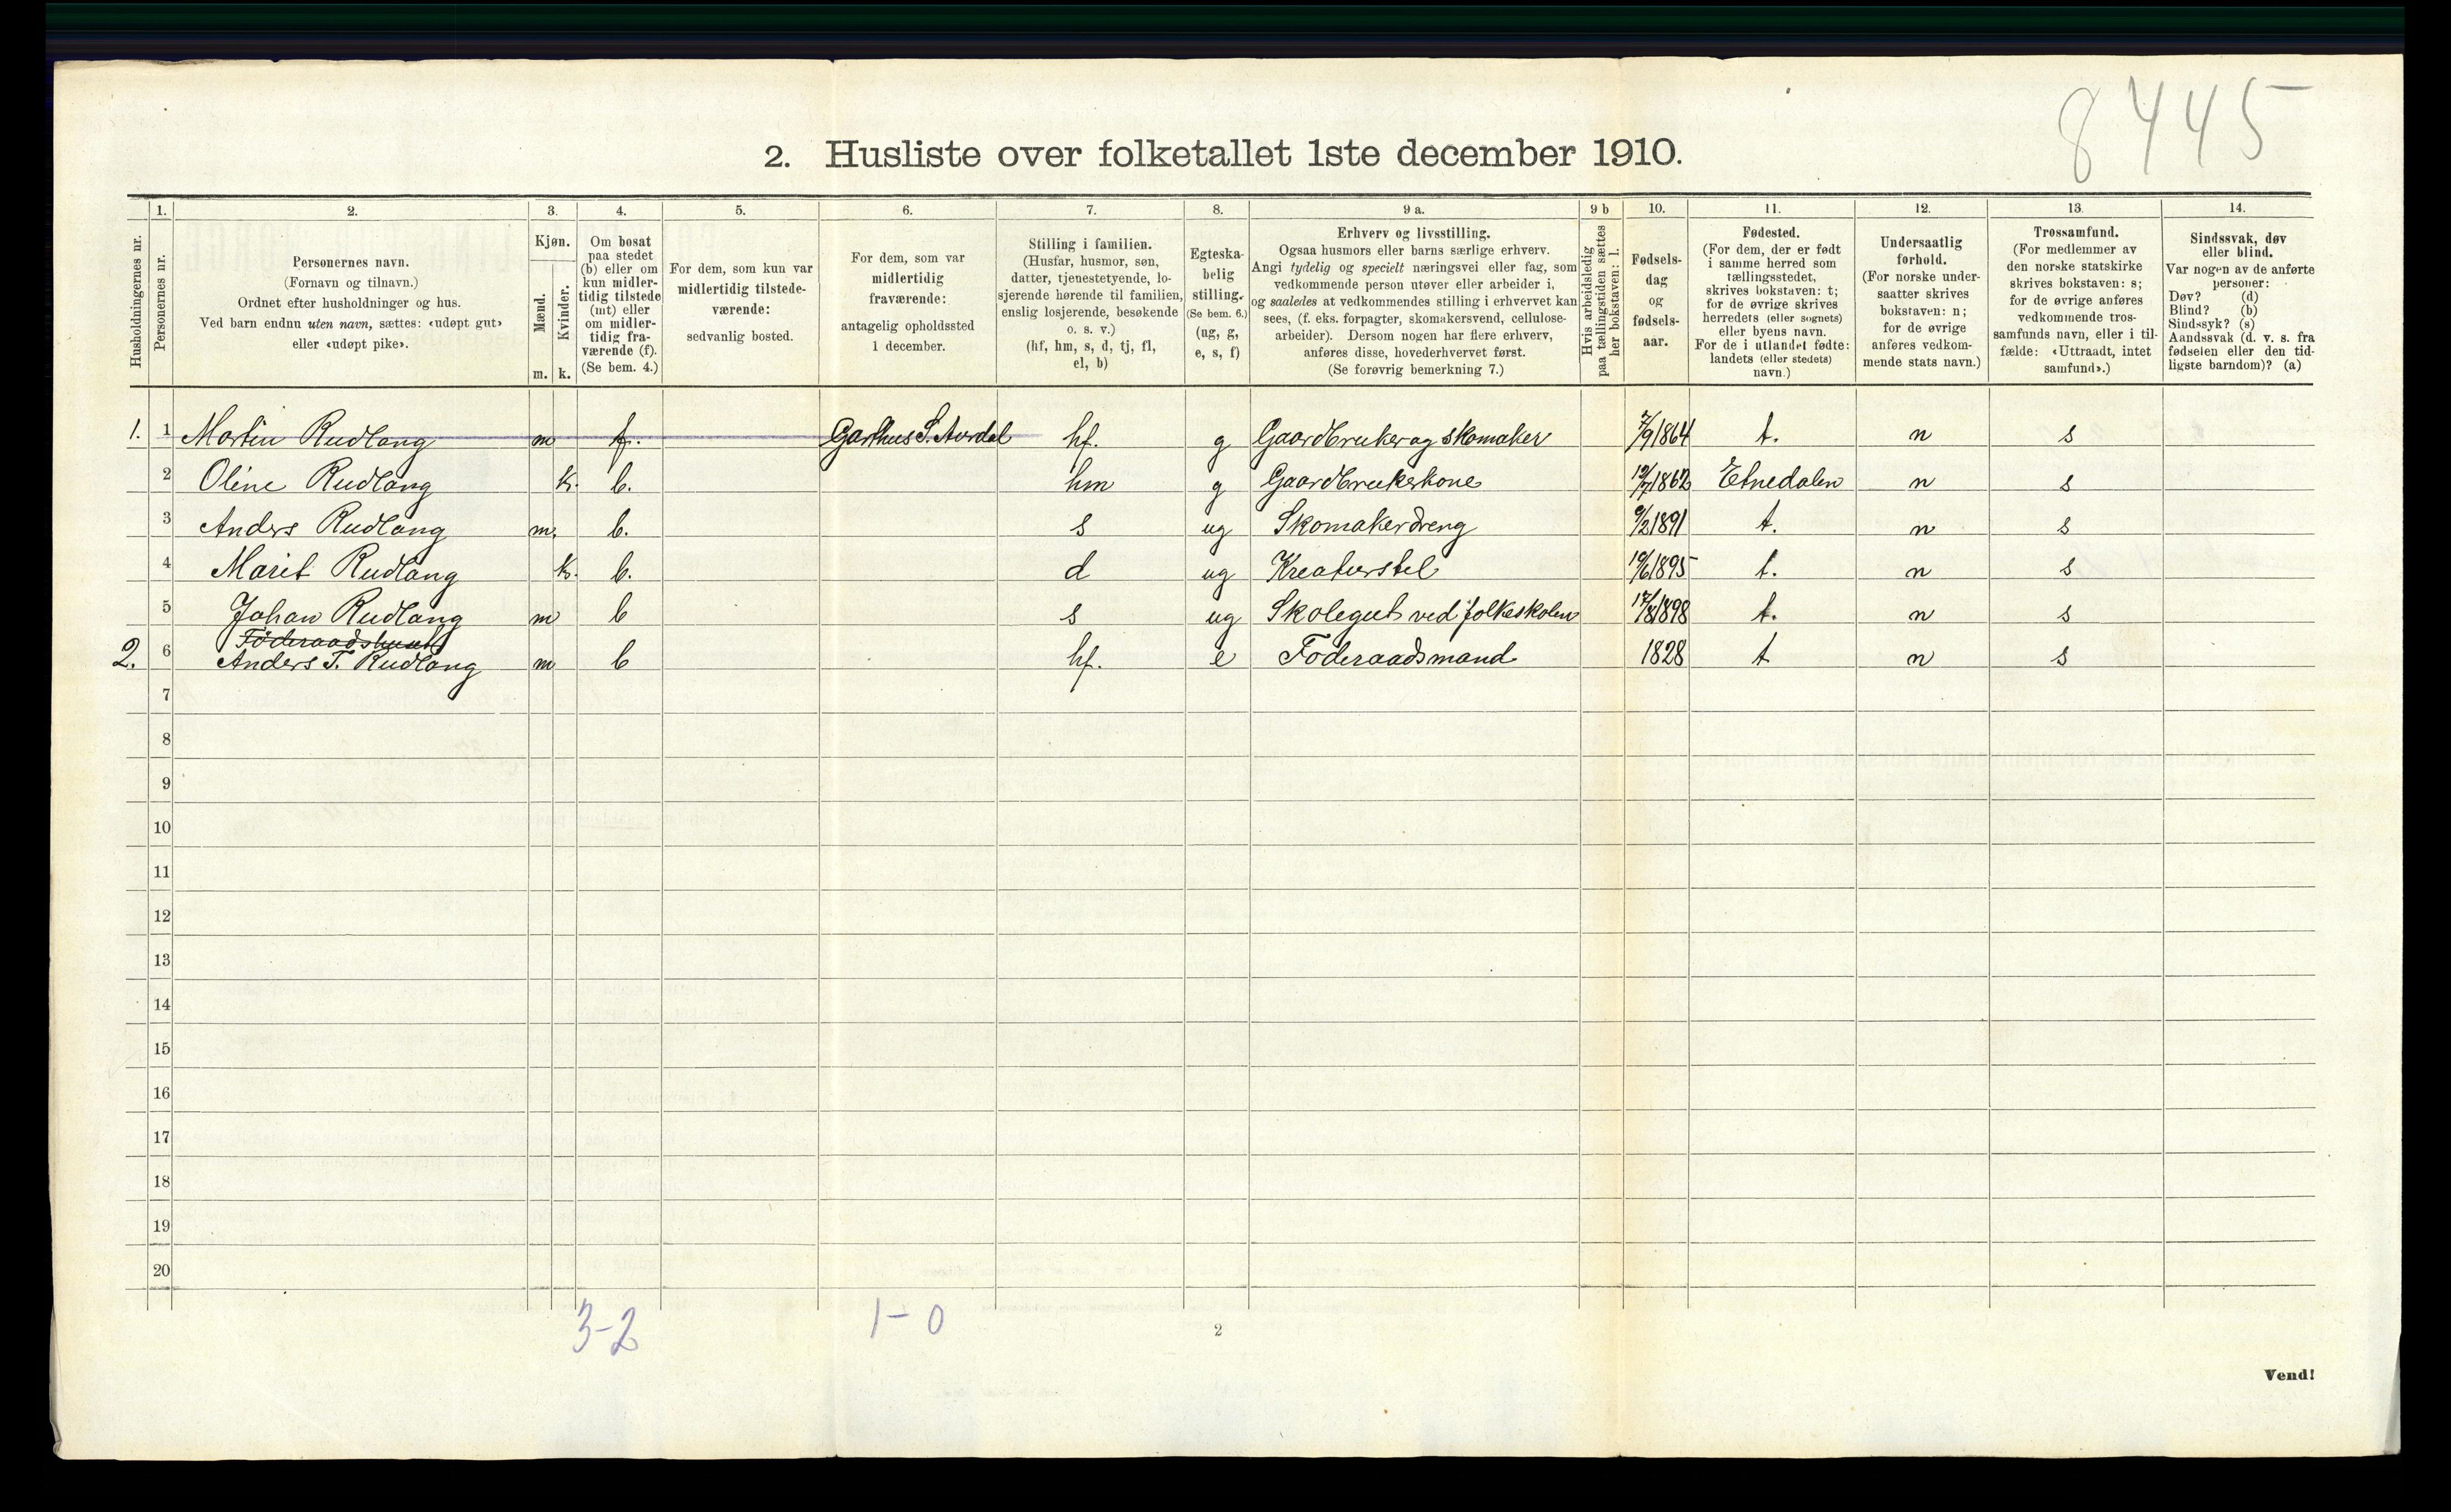 8445
2. Husliste over folketallet 1ste december 1910.
1. 2. 3. 4. 5. 6. 7. 8. 9 a. 9 b 10. 11. 12. 13. 14.
Husholdningernes nr.
Personernes nr.
Personernes navn.
(Fornavn og tilnavn.)
Ordnet efter husholdninger og hus.
Ved barn endnu uten navn, sættes: «udøpt gut»
eller «udøpt pike».
Kjøn.
Mænd.
Kvinder.
m. k.
Om bosat
paa stedet
(b) eller om
kun midler-
tidig tilstede
(mt) eller
om midler-
tidig fra-
værende (f).
(Se bem. 4.)
For dem, som kun var
midlertidig tilstede-
værende:
sedvanlig bosted.
For dem, som var
midlertidig
fraværende:
antagelig opholdssted
1 december.
Stilling i familien.
(Husfar, husmor, søn,
datter, tjenestetyende, lo-
sjerende hørende til familien,
enslig losjerende, besøkende
o. s. v.)
(hf, hm, s, d, tj, fl,
el, b)
Egteska-
belig
stilling.
(Se bem. 6.)
(ug, g,
e, s, f)
Erhverv og livsstilling.
Ogsaa husmors eller barns særlige erhverv.
Angi tydelig og specielt næringsvei eller fag, som
vedkommende person utøver eller arbeider i,
og saaledes at vedkommendes stilling i erhvervet kan
sees, (f. eks. forpagter, skomakersvend, cellulose-
arbeider). Dersom nogen har flere erhverv,
anføres disse, hovederhvervet først.
(Se forøvrig bemerkning 7.)
Hvis arbeidsledig
paa tællingstiden sættes
her bokstaven: l.
Fødsels-
dag
og
fødsels-
aar.
Fødested.
(For dem, der er født
i samme herred som
tællingsstedet,
skrives bokstaven: t;
for de øvrige skrives
herredets (eller sognets)
eller byens navn.
For de i utlandet fødte:
landets (eller stedets)
navn.)
Undersaatlig
forhold.
(For norske under-
saatter skrives
bokstaven: n;
for de øvrige
anføres vedkom-
mende stats navn.)
Trossamfund.
(For medlemmer av
den norske statskirke
skrives bokstaven: s;
for de øvrige anføres
vedkommende tros-
samfunds navn, eller i til-
fælde: «Uttraadt, intet
samfund».)
Sindssvak, døv
eller blind.
Var nogen av de anførte
personer:
Døv? (d)
Blind? (b)
Sindssyk? (s)
Aandssvak (d. v. s. fra
fødselen eller den tid-
ligste barndom)? (a)
1. 1 Martin Rudlang m f. Garthus S. Aurdal hf. g Gaardbruker og skomaker 7/9 1864 t. n s
2 Oline Rudlang k. b. hm g Gaardbrukerkone 1862 Etnedalen n s
3 Anders Rudlang m. b. s ug Skomakerdreng 9/2 1891 t. n s
4 Marit Rudlang k. b. d ug Kreaturstel 19/6 1895 t. n s
5 Johan Rudlang m b s ug Skolegut ved folkeskolen 17/8 1898 t. n s
Föderaads
2. 6 Anders T. Rudlang m b hf. e Föderaadsmand 1828 t n s
7
8
9
10
11
12
13
14
15
16
17
18
19
20
3-2 1-0
2
Vend!